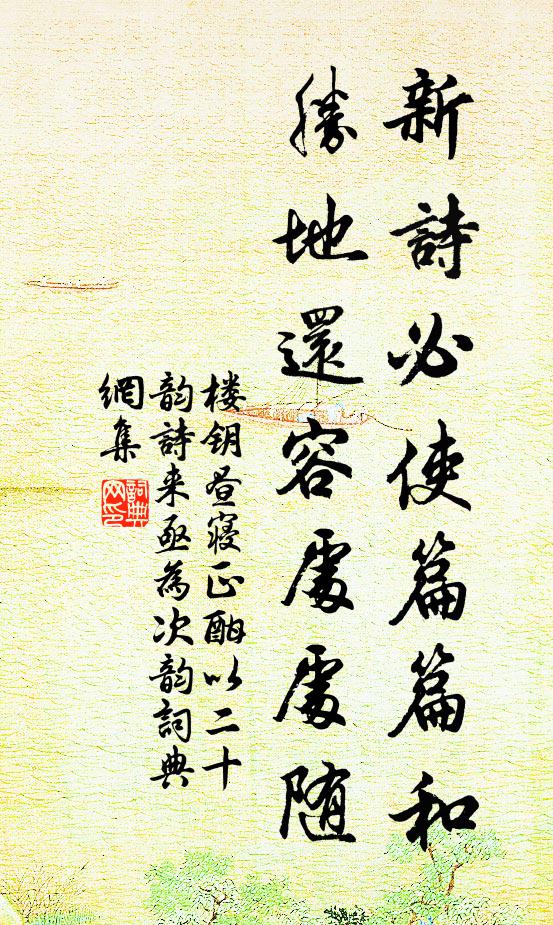 新詩必使篇篇和
勝地還容處處隨
楼钥昼寝正酣以二十
韵詩来亟為次韵詞典
網集
詞典网印